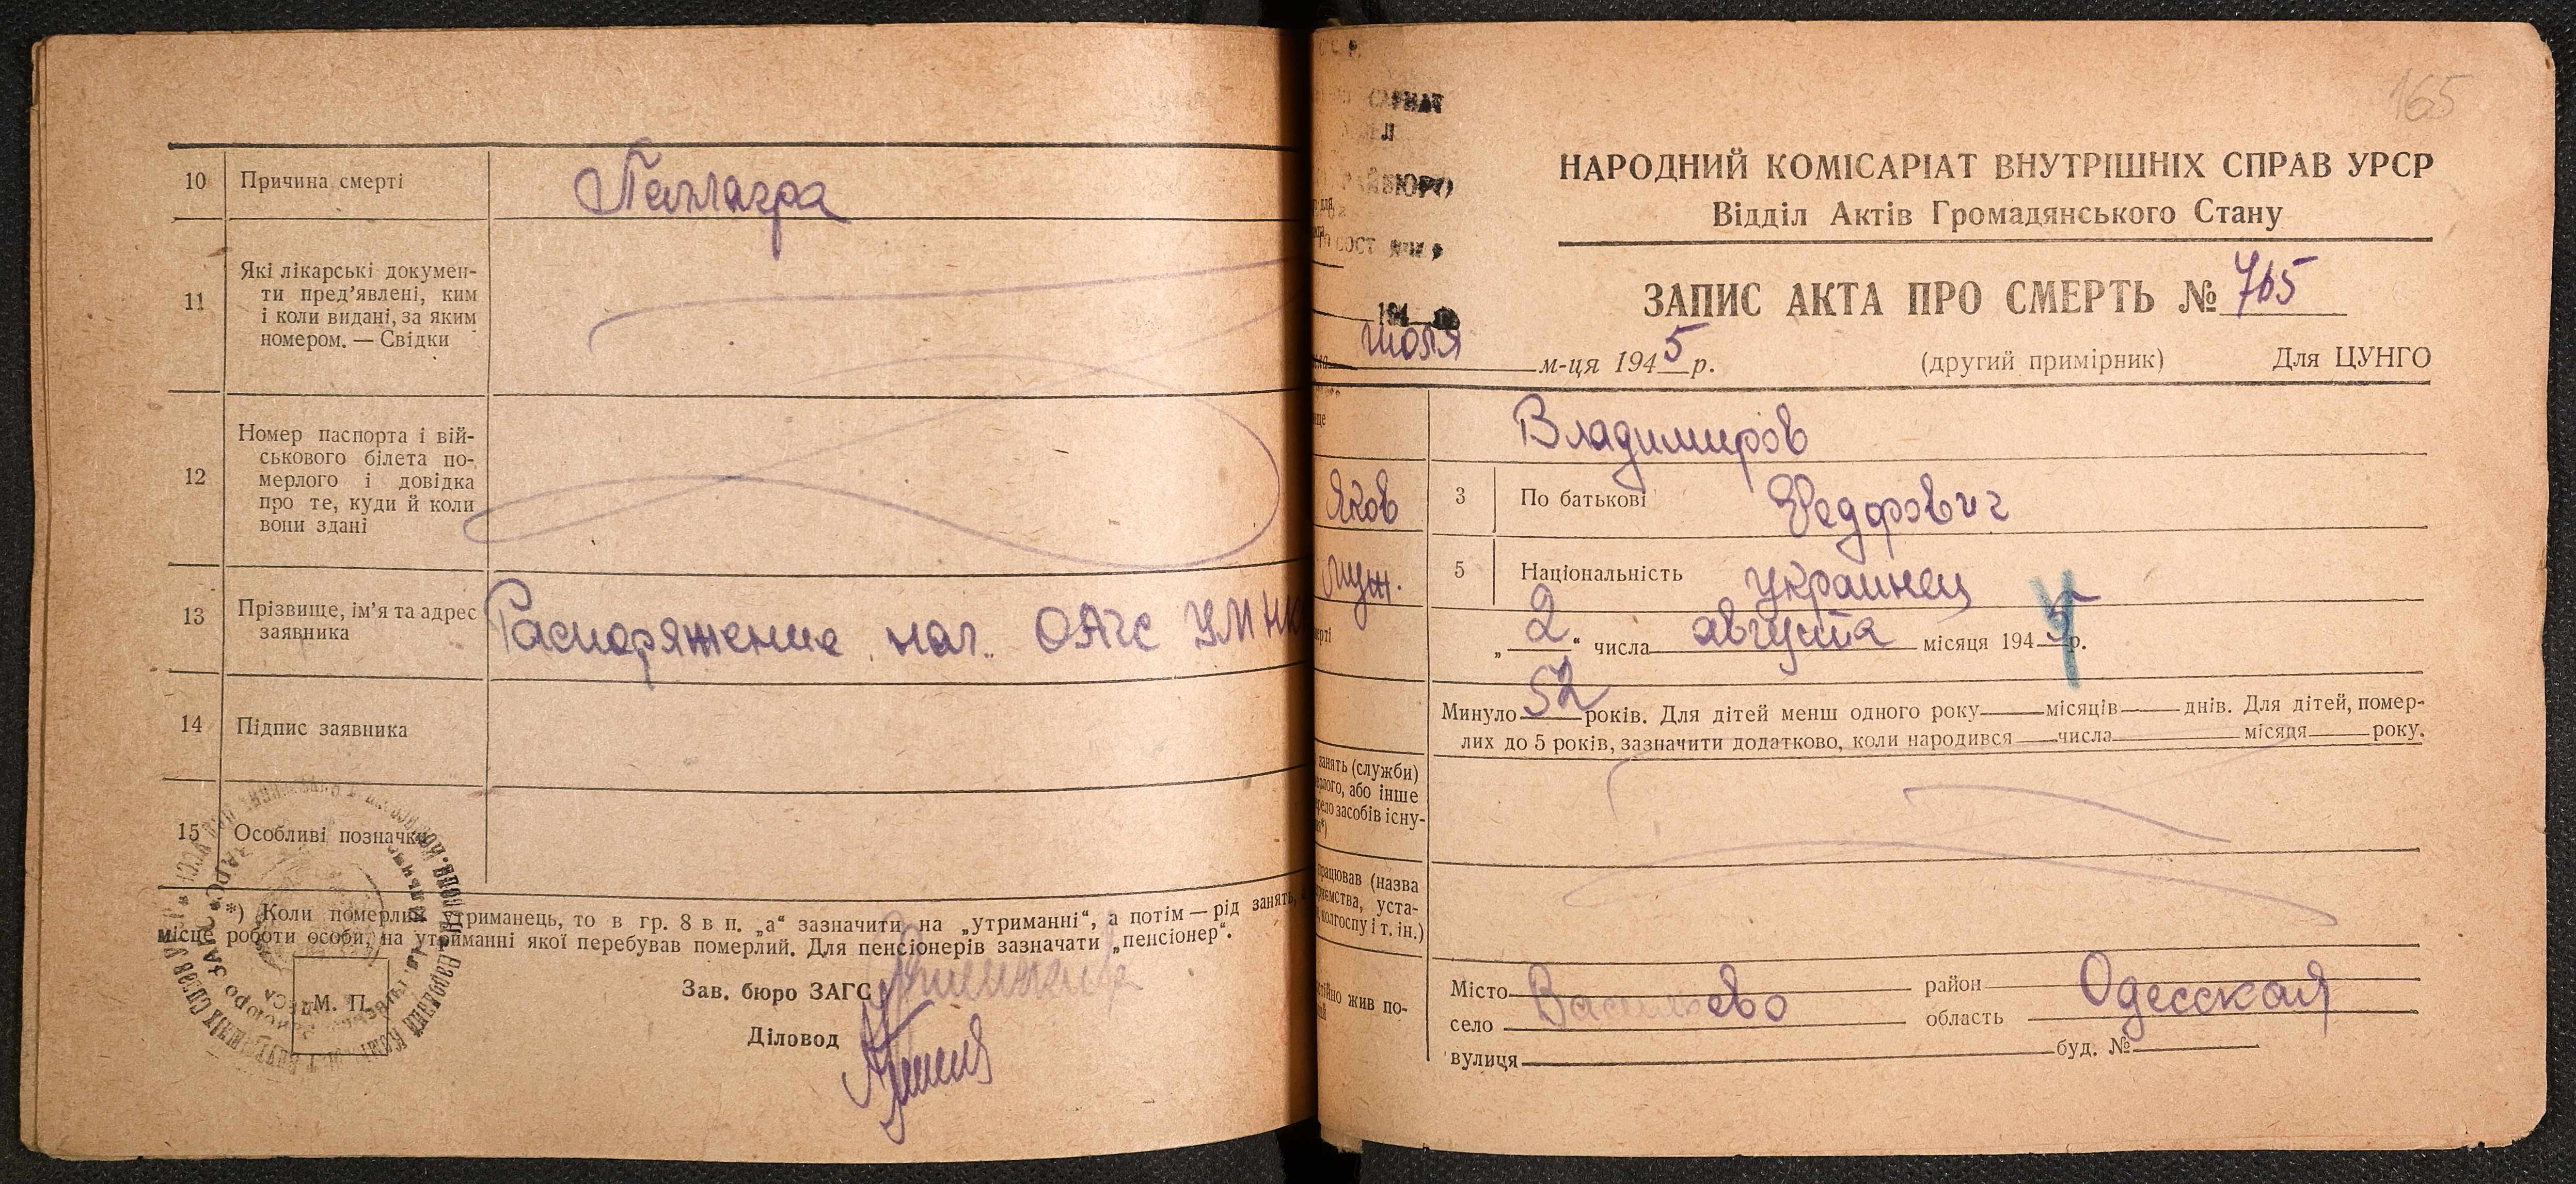 10 Причина смерті Пеллагра
11 Які лікарські докумен-
ти пред'явлені, ким
і коли видані, за яким
номером. — Свідки
12 Номер паспорта і вій-
ськового білета по-
мерлого і довідка
про те, куди й коли
вони здані
13 Прізвище, ім'я та адрес
заявника
Распоряжение нач. ОАГС УМНК
14 Підпис заявника
15 Особливі позначки
*) Коли померлий утриманець, то в гр. 8 в п. „а“ зазначити на „утриманні“, а потім — рід занять,
місце роботи особи, на утриманні якої перебував померлий. Для пенсіонерів зазначати „пенсіонер“.
Зав. бюро ЗАГС
М. П.
Діловод
165
НАРОДНИЙ КОМІСАРІАТ ВНУТРІШНІХ СПРАВ УРСР
Відділ Актів Громадянського Стану
ЗАПИС АКТА ПРО СМЕРТЬ № 765
194
июля м-ця 1945 р. (другий примірник) Для ЦУНГО
Владимиров
Яков 3 По батькові Федорович
муж. 5 Національність украинец
„ 2 “ числа августа місяця 194 р.
Минуло 52 років. Для дітей менш одного року місяців днів. Для дітей, помер-
лих до 5 років, зазначити додатково, коли народився числа місяця року.
занять (служби)
або інше
засобів існу-
працював (назва
уста-
колгоспу і т. ін.)
жив по-
Місто Васильево район Одесская
село область
вулиця буд. №